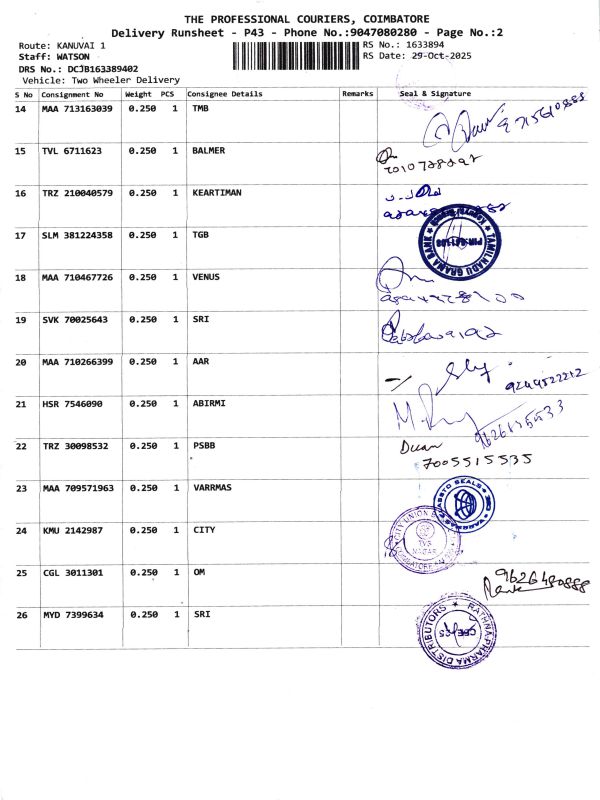 THE PROFESSIONAL COURIERS, COIMBATORE
Delivery Runsheet - P43 - Phone No.:9047080280 - Page No.:2
Route: KANUVAI 1
RS No.: 1633894
Staff: WATSON
RS Date: 29-Oct-2025
DRS No.: DCJB163389402
Vehicle: Two Wheeler Delivery
S No Consignment No Weight PCS Consignee Details Remarks Seal & Signature
14 MAA 713163039 0.250 1 TMB
15 TVL 6711623 0.250 1 BALMER
16 TRZ 210040579 0.250 1 KEARTIMAN
17 SLM 381224358 0.250 1 TGB
TAMILNADU GRAMA BANK
18 MAA 710467726 0.250 1 VENUS
19 SVK 70025643 0.250 1 SRI
20 MAA 710266399 0.250 1 AAR
9244522212
21 HSR 7546090 0.250 1 ABIRMI
22 TRZ 30098532 0.250 1 PSBB
7005515535
23 MAA 709571963 0.250 1 VARRMAS
24 KMU 2142987 0.250 1 CITY
CITY UNION
TVS
NAGAR
25 CGL 3011301 0.250 1 OM
9626480888
26 MYD 7399634 0.250 1 SRI
RATHNA PHARMA DISTRIBUTORS